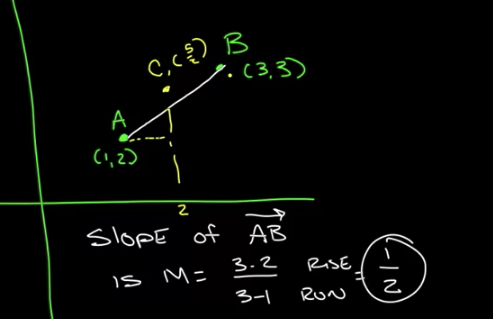 B
C, (5/2)
(3,3)
A
(1,2)
2
SLOPE of AB
is M= 3-2 / 3-1 RISE / RUN = 1/2